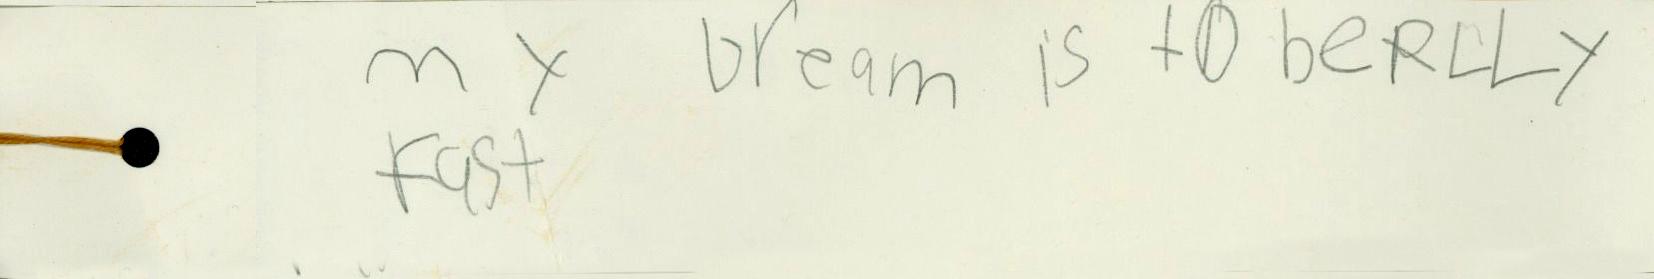 my bream is to beRLLy
Fast